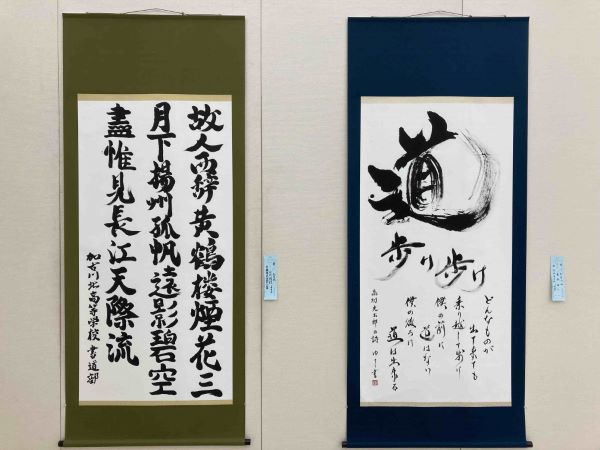 故人西辭黄鶴楼煙花三
月下揚州孤帆遠影碧空
盡惟見長江天際流
加古川北高等学校 書道部
道
歩け歩け
どんなものが
出て来ても
乗り越して歩け
僕の前に
道はない
僕の後ろに
道は出来る
高村光太郎の詩